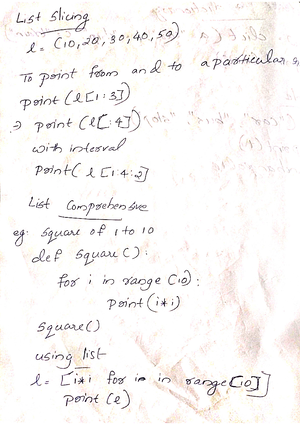 List Slicing
l = (10,20,30,40,50)
To print from and to a particular
print (l[1:3])
→ print (l[:4])
with interval
print( l[1:4:2]
List Comprehensive
eg: Square of 1 to 10
def square():
for i in range (10):
print(i*i)
Square()
using list
l = [i*i for i in range[10]]
print (l)